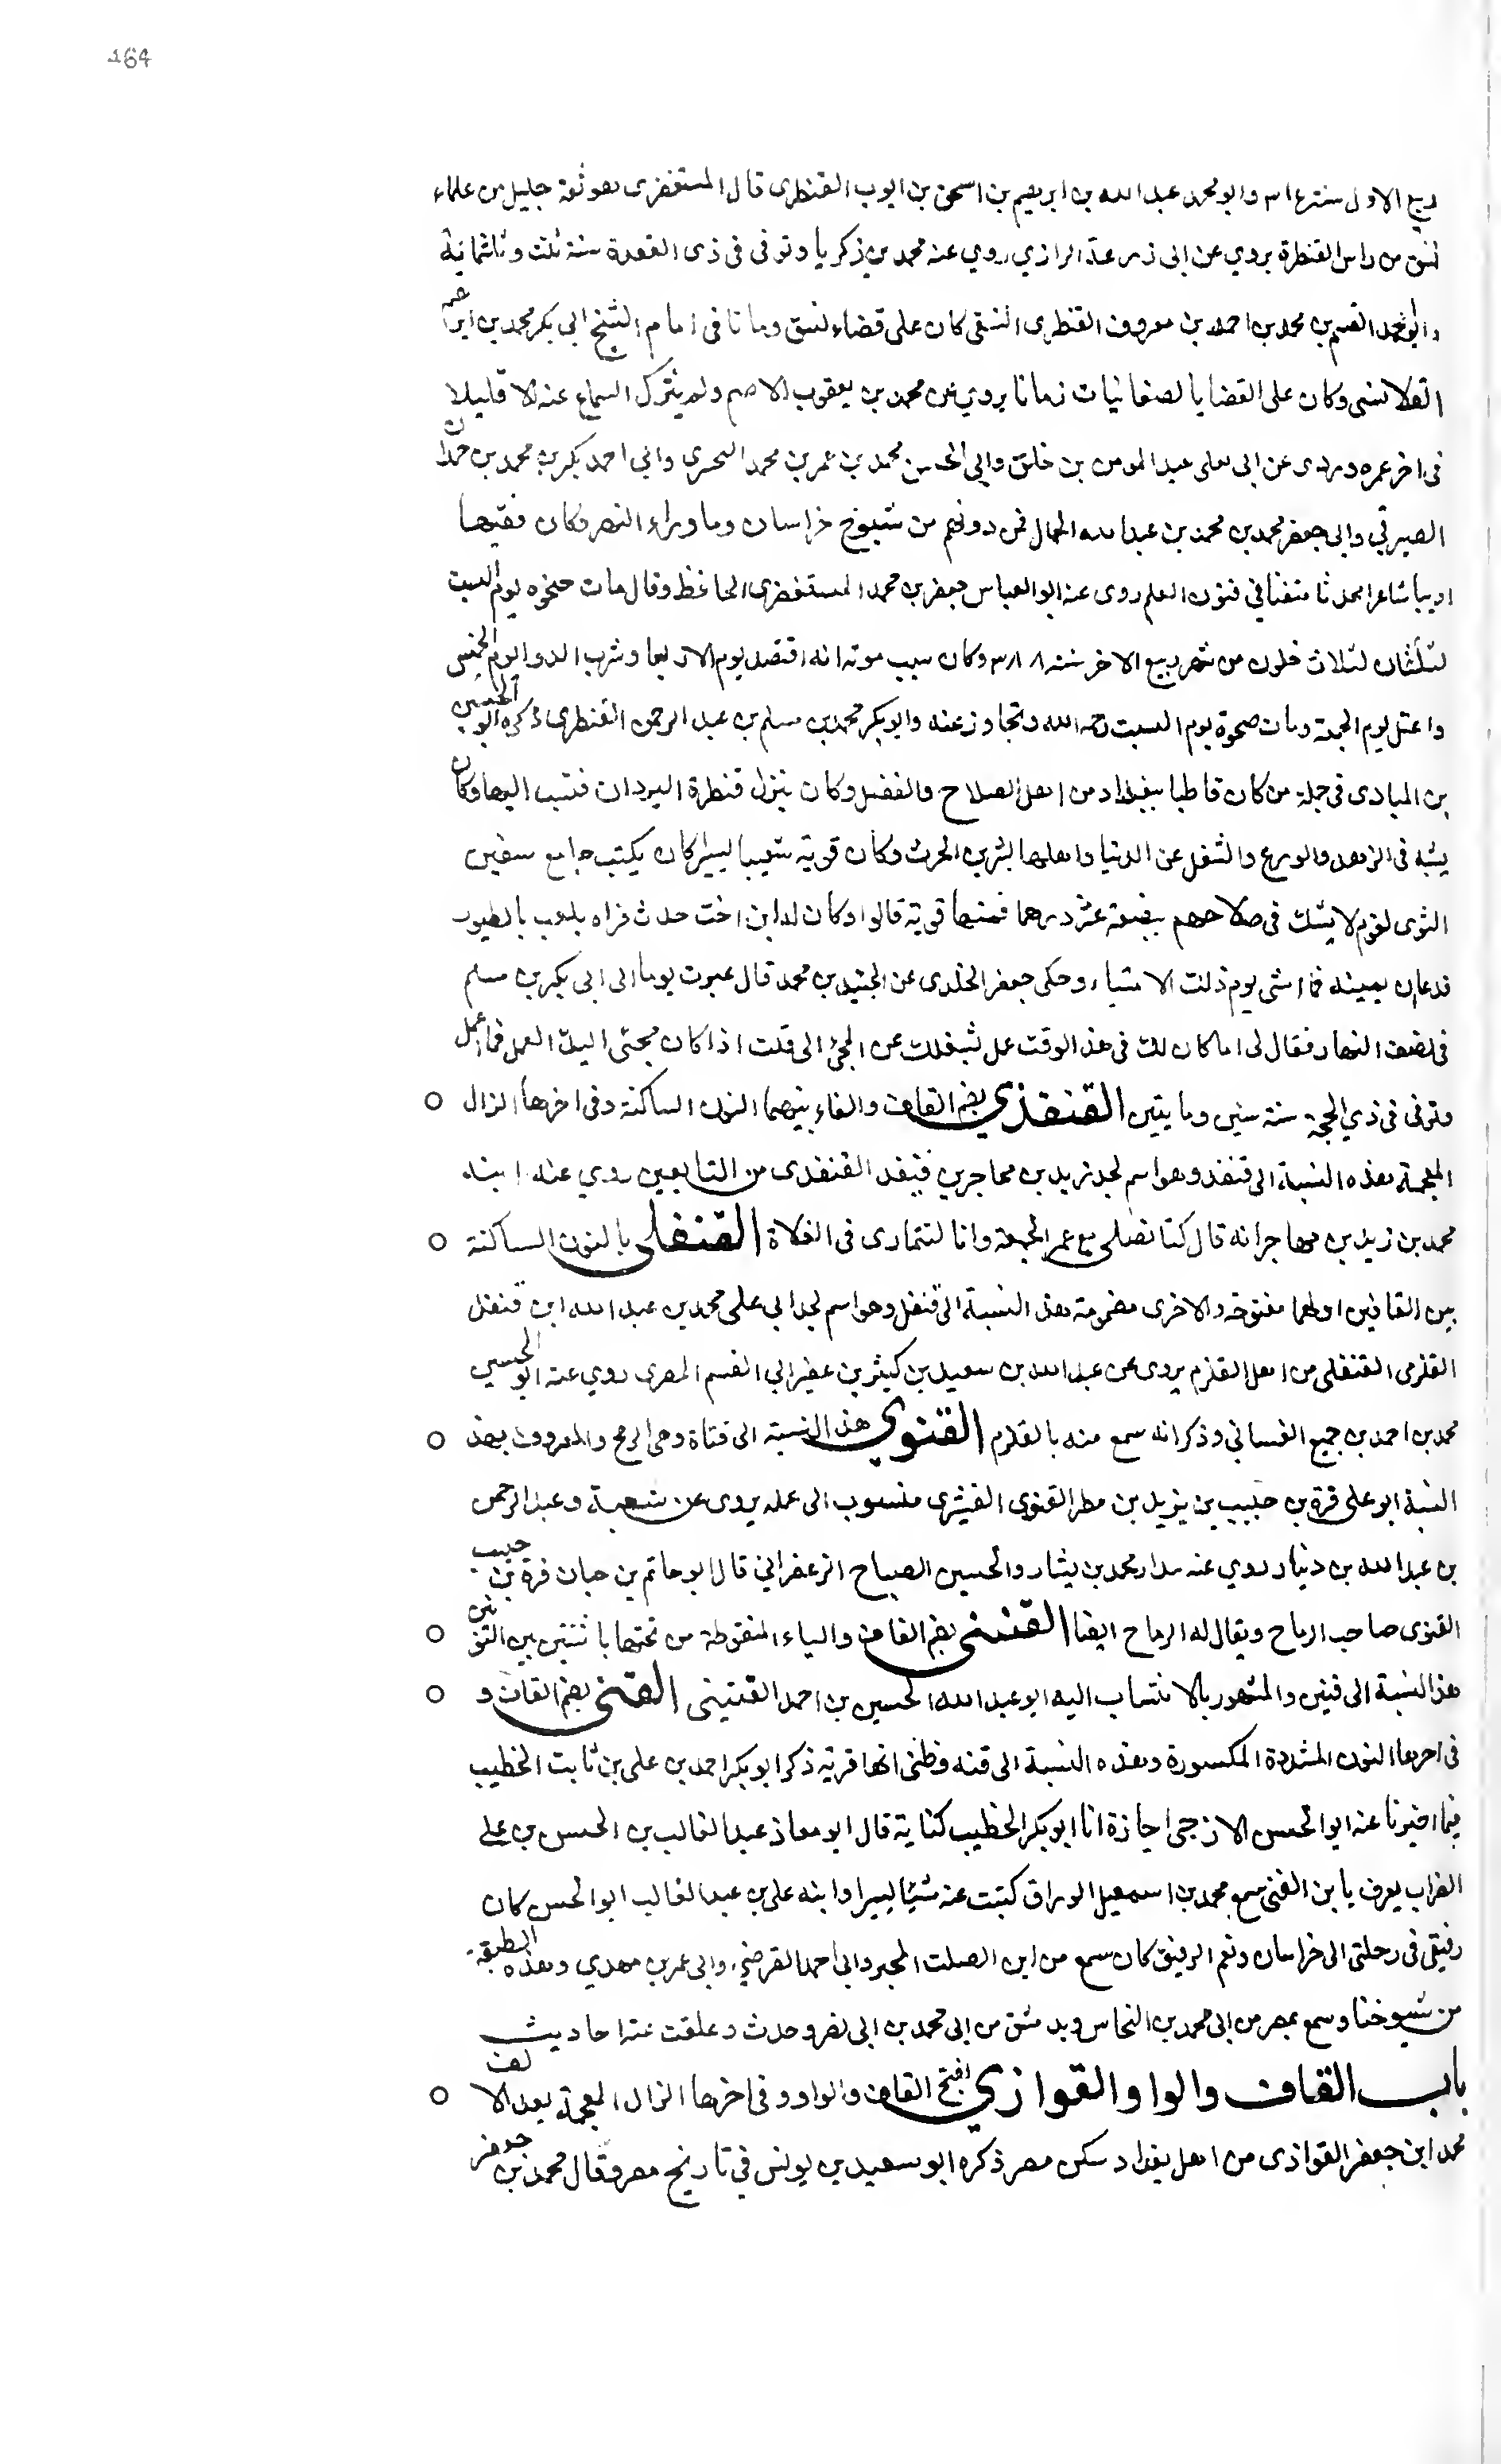 164
ربيع الاول سنة ٣١٤ وابو محمد عبد الله بن ابرهيم بن اسحق بن ايوب القنطرى قال المستغفرى هو ثقة جليل من علماء
نسق من راس القنطرة يروي عن ابى زرعة الرازي روي عنه محمد بن زكريا وتوفى فى ذى القعدة سنة ثلث وثلثمائة
وابو محمد القسم بن محمد بن احمد بن معروف القنطرى النسفى كان على قضاء نسق ومات فى امام الشيخ ابى بكر محمد بن ابرهيم
القلانسى وكان على القضا بالصغانيات زمانا يروي عن محمد بن يعقوب الاصم ولم يترك السماع عنه الا قليلا
فى اخر عمره وروى عن ابى يعلى عبد المومن بن خلف وابي الحسن محمد بن عمر بن محمد البحرى وابى احمد بكر بن محمد بن حمدان
الصيرفي وابى جعفر محمد بن محمد بن عبد الله الجمال فمن دونهم من شيوخ خراسان وما وراء النهر وكان فقيها
اديبا شاعرا محدثا متفننا في فنون العلم روى عنه ابو العباس جعفر بن محمد المستغفرى الحافظ وقال مات ضحوه يوم السبت
لثلاث خلون من شهر ربيع الاخر سنة ٣٨٨ وكان سبب موته انه افتصد يوم الاربعا وشرب الدوا يوم الخميس
واعتل يوم الجمعة ومات ضحوة يوم السبت رحمه الله وتجاوز عنه وابو بكر محمد بن مسلم بن عبد الرحمن القنطرى ذكره ابو الحسين
بن المنادى فى جملة من كان قاطبا ببغداد من اهل الصلاح والفضل وكان ينزل قنطرة البردان فنسب اليها وكان
يشبه فى الزهد والورع والشغل عن الدنيا واهلها بشر بن الحرث وكان قوته شيبا يسيرا كان يكتب جامع سفين
الثورى لقوم لا يشك فى صلاحهم ببضعة عشر درهما فمنها قوته قالوا وكان له ابن اخت حدث فراه يلعب بالطيور
فدعا ان يميته فما امسى يوم ذلك الا ميتا وحكى جعفر الخلدى عن الجنيد بن محمد قال عبرت يوما الى ابى بكر بن مسلم
فى نصف النهار فقال لى اما كان لك فى هذا الوقت عمل يشغلك عن المجئ الى قلت اذا كان مجئى اليك العمل فما اعمل
وتوفى فى ذي الحجة سنة ستين ومايتين القنفذي بضم القاف والفاء بينهما النون الساكنة وفى اخرها الذال
المعجمة هذه النسبة الى قنفذ وهو اسم لجد زيد بن مهاجر بن قنفد القنفدى من التابعين روي عنه ابنه
محمد بن زيد بن مهاجر انه قال كنا نصلى مع عمر الجمعة وانا لنتمارى فى الفلاة القنفلى بالنون الساكنة
بين القافين اولهما مفتوحة والاخرى مضمومة هذه النسبة الى قنفل وهو اسم لجد ابي على محمد بن عبد الله ابن قنفل
القلزمى القنفلى من اهل القلزم يروى عن عبد الله بن سعيد بن كثير بن عفير ابي القسم المصرى روي عنه ابو الحسين
محمد بن احمد بن جميع الغسانى وذكر انه سمع منه بالقلزم القنوي هذه النسبة الى قناة وهى الرمح والمعروف بهذ
النسبة ابو على قرة بن حبيب بن يزيد بن مطر القنوى القشيرى منسوب الى عمله يروى عن شعبة وعبد الرحمن
بن عبد الله بن دينار روي عنه بندار محمد بن بشار والحسين الصباح الزعفراني قال ابو حاتم بن حبان قرة بن حبيب
القنوى صاحب الرماح ويقال له الرماح ايضا القنينى بضم القاف والياء المنقوطة من تحتها باثنتين بين النونين
هذه النسبة الى قنين والمشهور بالانتساب اليه ابو عبد الله الحسين بن احمد القنينى القنى بضم القاف و
فى اخرها النون المشددة المكسورة وهذه النسبة الى قنه وظنى انها قرية ذكر ابو بكر احمد بن على بن ثابت الخطيب
فيما اخبرنا عنه ابو الحسن الازجى اجازة انا ابو بكر الخطيب كتابة قال ابو معاذ عبد الغالب بن الحسن بن على
الضراب يعرف بابن القنى سمع محمد بن اسمعيل الوراق كتبت عنه شيئا يسيرا وابنه على بن عبد الغالب ابو الحسن كان
رفيقى فى رحلتى الى خراسان ونعم الرفيق كان سمع من ابن الصلت المجبر وابى احمد الفرضي وابى عمر بن مهدي وهذه الطبقة
من شيوخنا وسمع بمصر من ابى محمد بن النحاس وبدمشق من ابى محمد بن ابى نصر وحدث وعلقت عنه احاديث
باب القاف والواو القواذي بفتح القاف والواو وفى اخرها الذال المعجمة بعد الالف
محمد ابن جعفر القواذى من اهل بغداد سكن مصر ذكره ابو سعيد بن يونس في تاريخ مصر وقال محمد بن جعفر